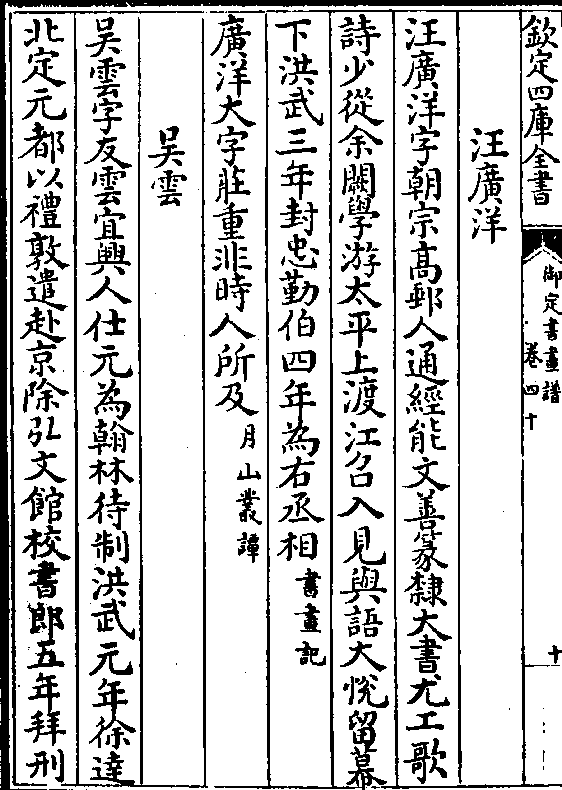 欽定四庫全書
御定書畫譜
卷四十
十
汪廣洋
汪廣洋字朝宗高郵人通經能文善篆隸大書尤工歌
詩少從余闕學游太平上渡江召入見與語大悅留幕
下洪武三年封忠勤伯四年為右丞相書畫記
廣洋大字莊重非時人所及月山叢譚
吳雲
吳雲字友雲宜興人仕元為翰林待制洪武元年徐達
北定元都以禮敦遣赴京除弘文館校書郎五年拜刑